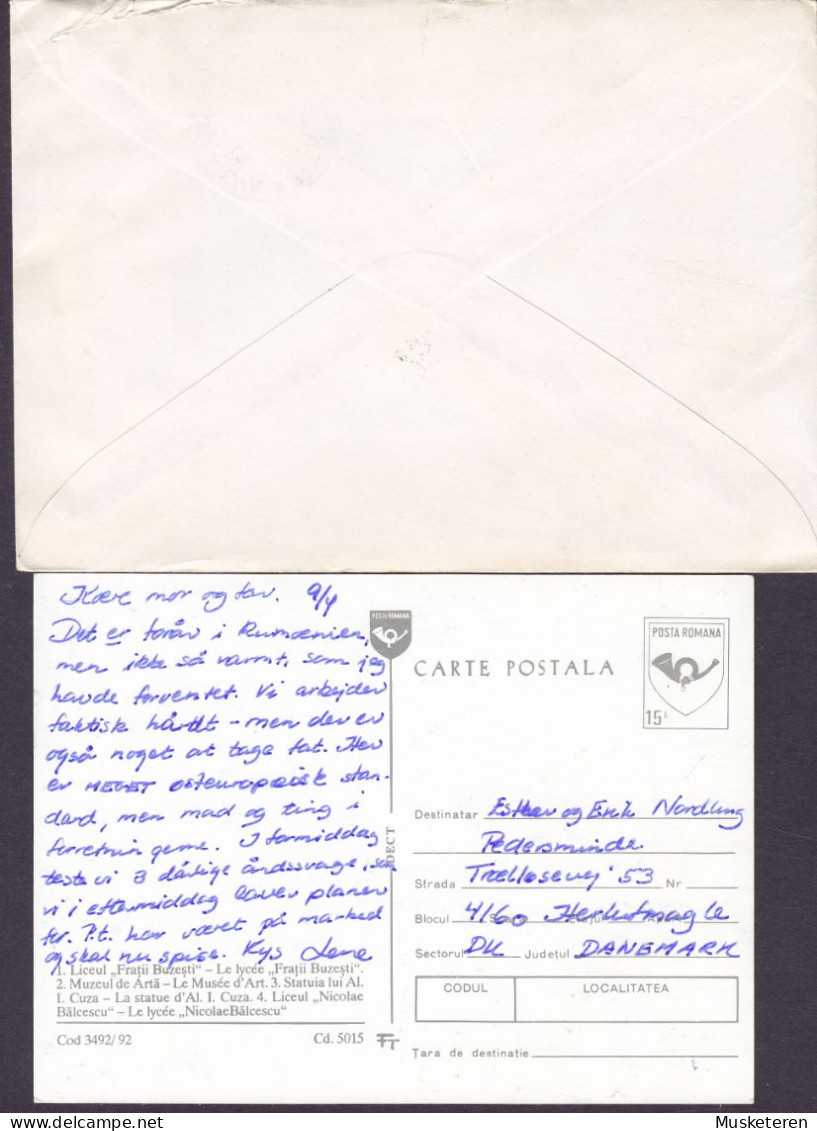 Kære mor og far. 9/4
Det er forår i Rumænien,
men ikke så varmt, som jeg
havde forventet. Vi arbejder
faktisk hårdt - men der er
også noget at tage fat. Her
er MEGET østeuropæisk stan-
dard, men mad og ting i
forretningerne. I formiddag
teste vi 3 dårlige åndssvage, som
vi i eftermiddag laver planer
for. P.t. har været på marked
og skal nu spise. Kys Lene
1. Liceul „Frații Buzești" – Le lycée „Frații Buzești".
2. Muzeul de Artă – Le Musée d'Art. 3. Statuia lui Al.
I. Cuza – La statue d'Al. I. Cuza. 4. Liceul „Nicolae
Bălcescu" – Le lycée „NicolaeBălcescu"
Cod 3492/92 Cd. 5015
POSTA ROMANA
DECT
FT
CARTE POSTALA
POSTA ROMANA
15 L
Destinatar Esther og Erik Nordling
Pedersminde
Strada Trælløsevej 53 Nr
Blocul 4160 Herlufmagle
Sectorul DK Județul DANEMARK
CODUL LOCALITATEA
Țara de destinație
www.delcampe.net Musketeren